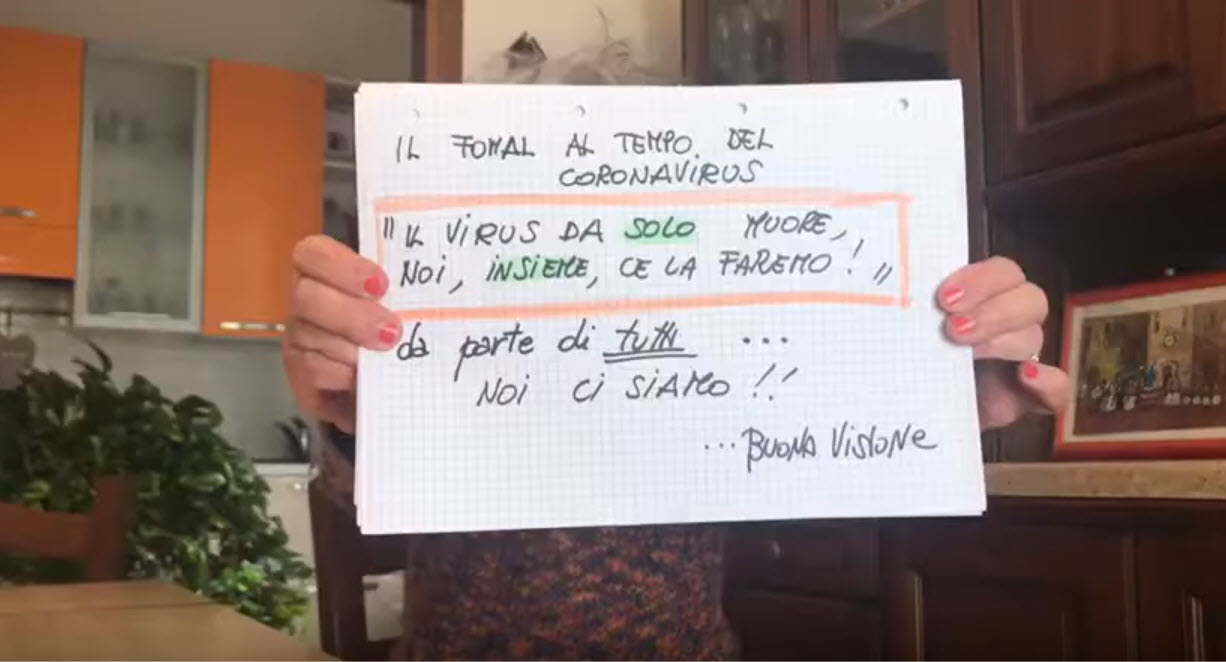 IL FOMAL AL TEMPO DEL
CORONAVIRUS
"IL VIRUS DA SOLO MUORE,
NOI, INSIEME, CE LA FAREMO!"
da parte di tutti ...
NOI CI SIAMO!!
...BUONA VISIONE